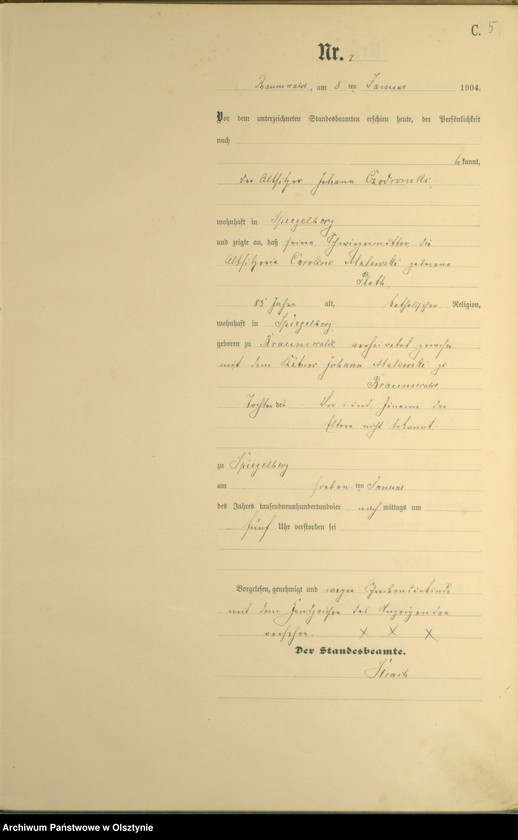 C. 5.
Nr. 7
Braunswalde, am 8 ten Januar 1904.
Vor dem unterzeichneten Standesbeamten erschien heute, der Persönlichkeit
nach
bekannt,
der Altsitzer Johann Czodrowski,
wohnhaft in Spiegelberg
und zeigte an, daß seine Schwiegermutter, die
Altsitzerin Caroline Malewski geborene
83 Jahre alt, katholischer Religion,
wohnhaft in Spiegelberg,
geboren zu Braunswalde verheiratet gewesen
mit dem Johann Malewski zu
Braunswalde,
Tochter der Vor- und Zuname der
Eltern nicht bekannt
zu Spiegelberg
am sieben ten Januar
des Jahres tausendneunhundertundvier nach mittags um
fünf Uhr verstorben sei
Vorgelesen, genehmigt und wegen Schreibensunkunde
mit dem Handzeichen des Anzeigenden
versehen. X X X
Der Standesbeamte.
Archiwum Państwowe w Olsztynie